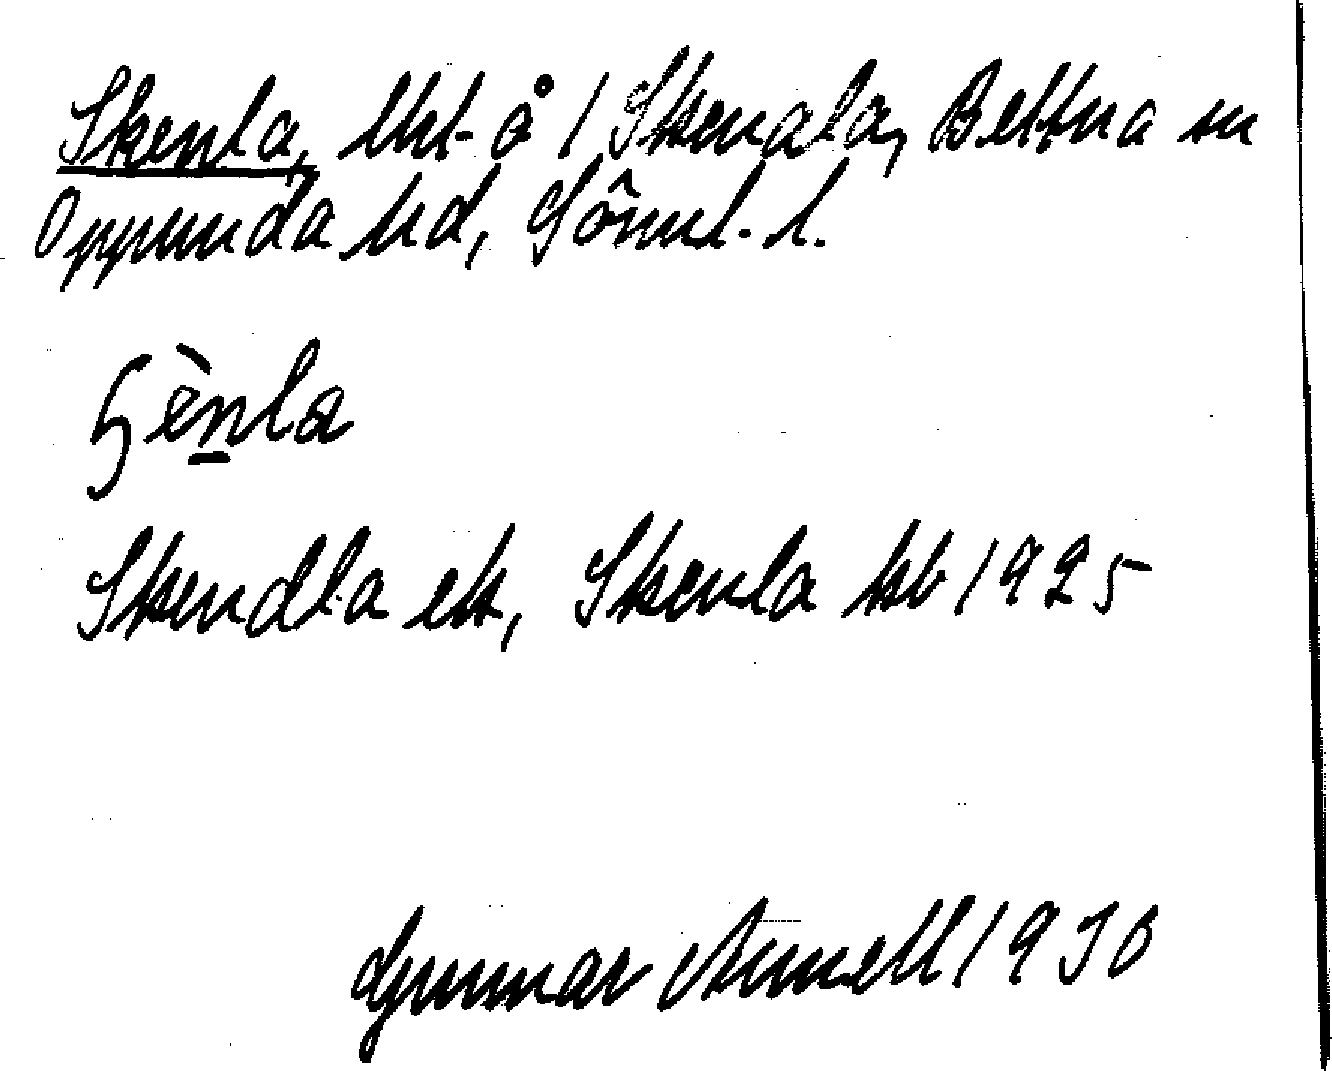 Skenla, lht å / Skenala, Bettna sn
Oppunda hd, Sörml. l.
ɧènla
Skendla ek, Skenla kb 1925
Gunnar Arnell 1930